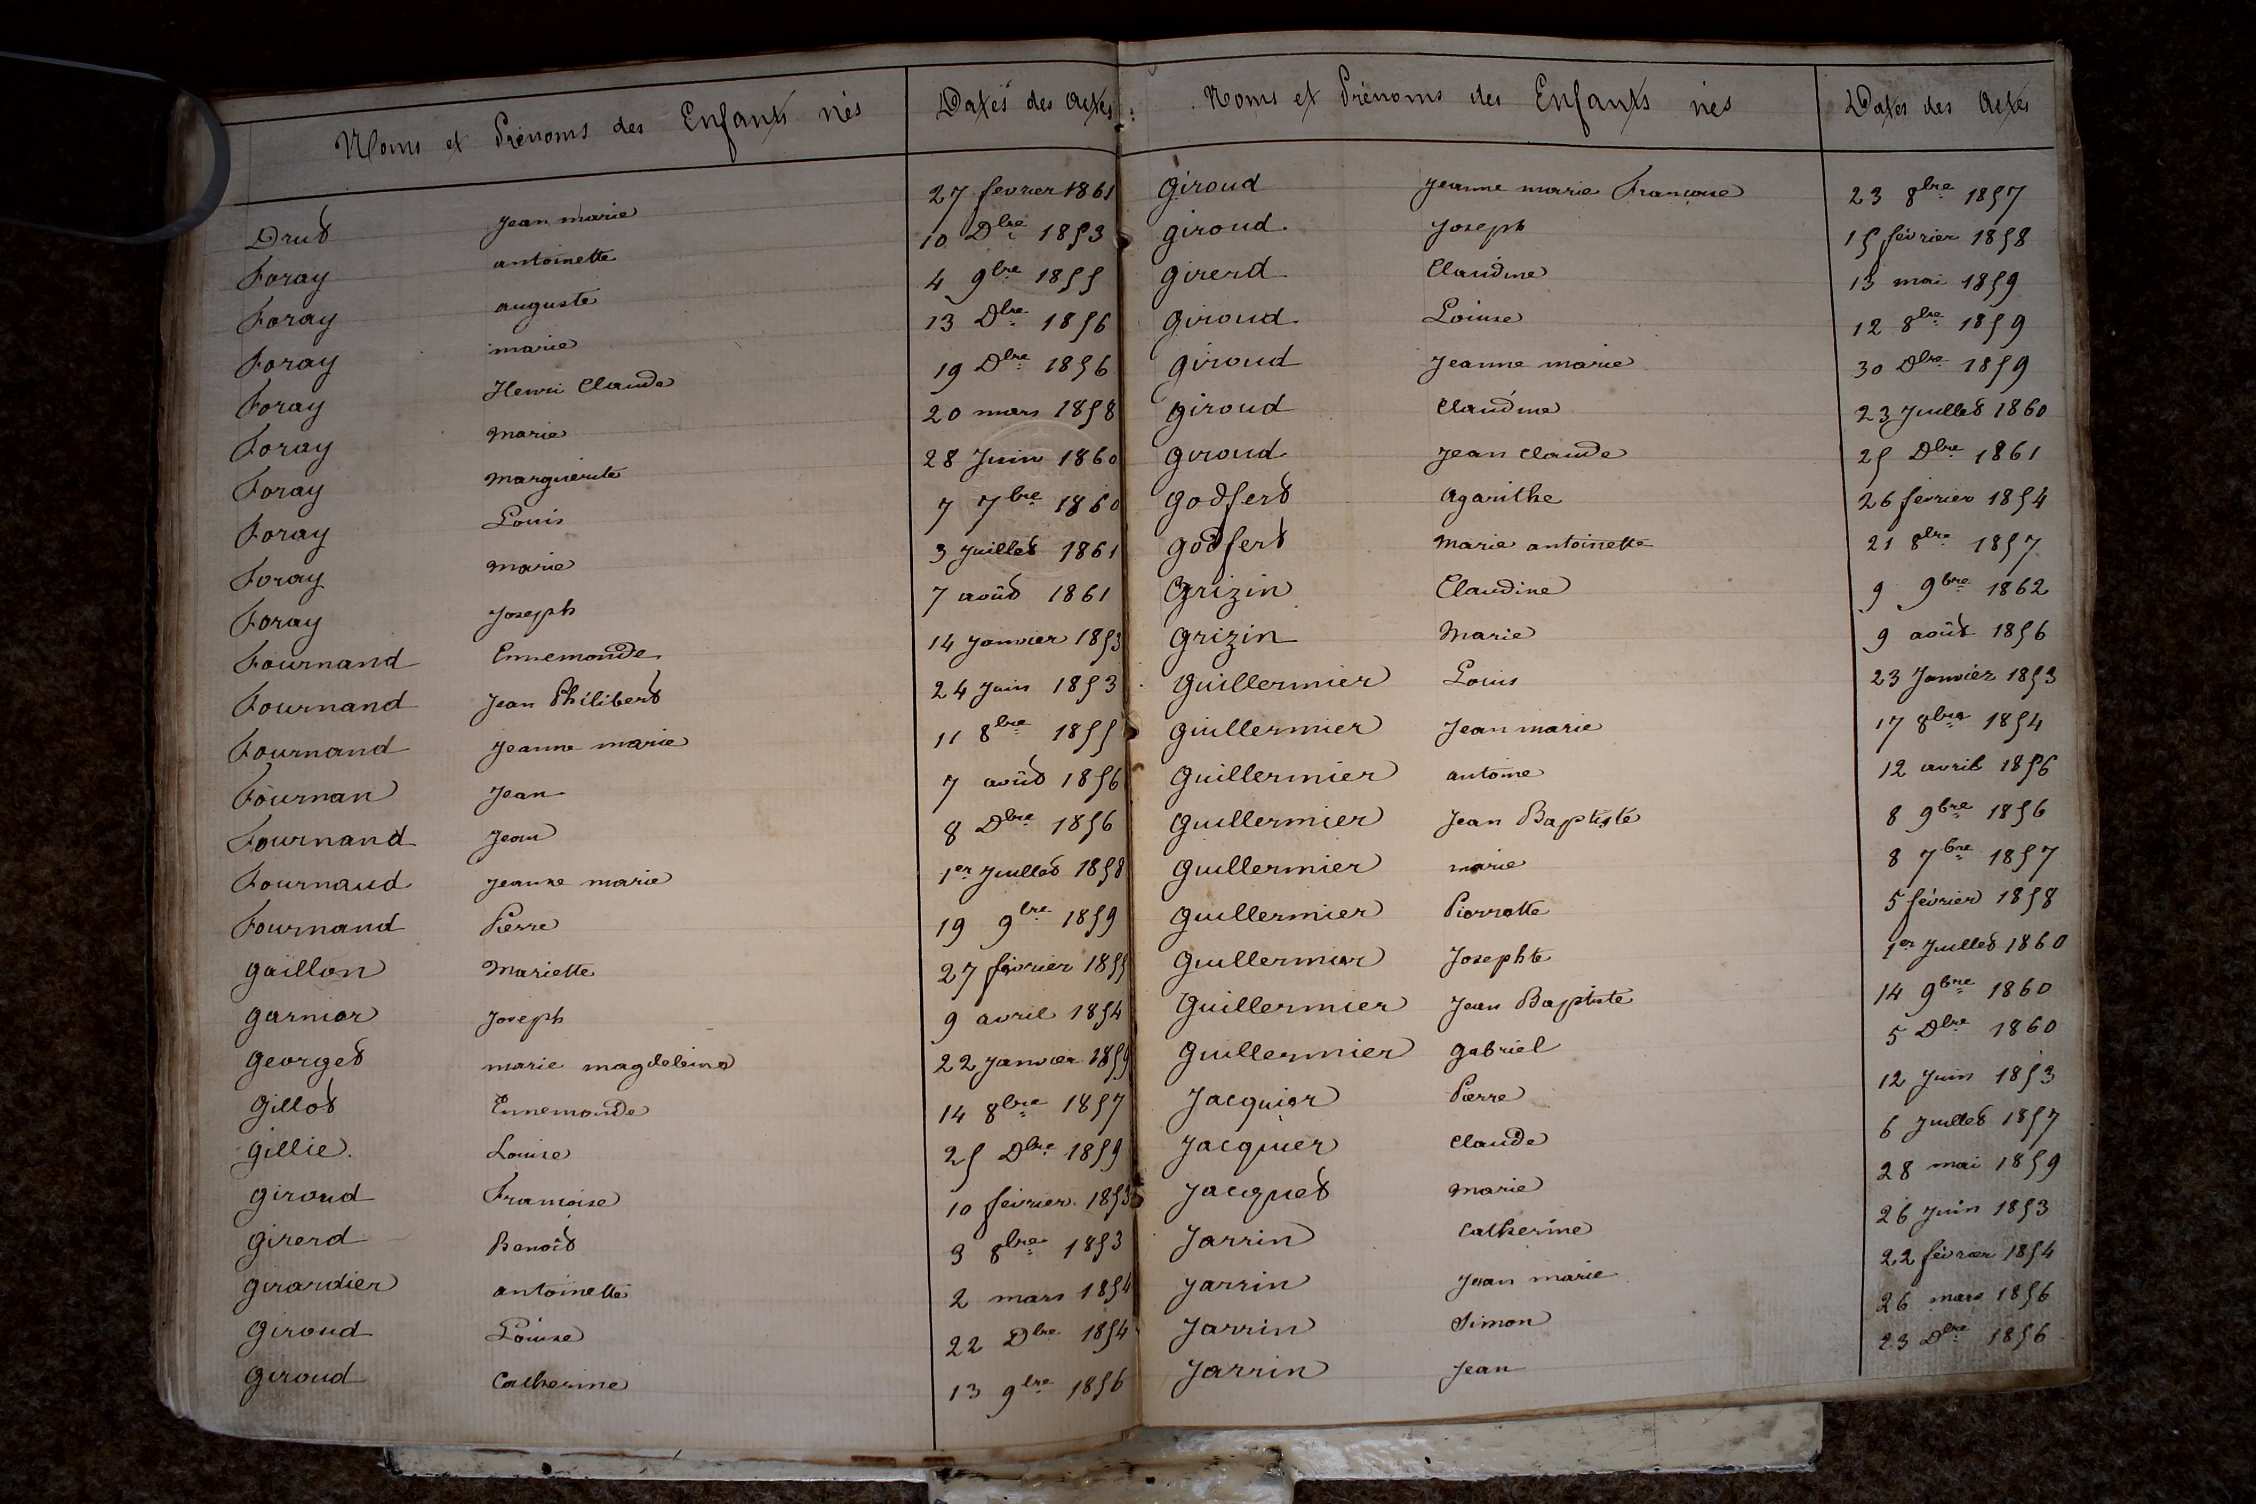 Noms et Prénoms des Enfants nés Dates des Actes
Drut Jean marie 27 fevrier 1861
Foray antoinette 10 Dbre 1853
Foray auguste 4 9bre 1855
Foray marie 13 Dbre 1856
Foray Henri Claude 19 Dbre 1856
Foray Marie 20 mars 1858
Foray Marguerite 28 Juin 1860
Foray Louis 7 7bre 1860
Foray Marie 3 Juillet 1861
Foray Joseph 7 août 1861
Fournand Ennemonde 14 Janvier 1853
Fournand Jean Philibert 24 Juin 1853
Fournand Jeanne marie 11 8bre 1855
Fournan Jean 7 août 1856
Fournand Jean 8 Dbre 1856
Fournaud Jeanne marie 1er Juillet 1858
Fournand Pierre 19 9bre 1859
gaillon Mariette 27 février 1855
garnier Joseph 9 avril 1854
georget marie magdeleine 22 Janvier 1859
gillot Ennemonde 14 8bre 1857
gillie. Louise 25 Dbre 1859
giroud Francoise 10 février 1853
girerd Benoît 3 8bre 1853
girardier antoinette 2 mars 1854
giroud Louise 22 Dbre 1854
giroud Catherine 13 9bre 1856
Noms et Prénoms des Enfants nés Dates des Actes
giroud Jeanne marie Françoise 23 8bre 1857
giroud Joseph 15 février 1858
girerd Claudine 13 mai 1859
giroud Louise 12 8bre 1859
giroud Jeanne marie 30 Dbre 1859
giroud Claudine 23 Juillet 1860
giroud Jean Claude 25 Dbre 1861
godfert agarithe 26 février 1854
godfert Marie antoinette 21 8bre 1857
Grizin Claudine 9 9bre 1862
grizin Marie 9 août 1856
guillermier Louis 23 Janvier 1853
guillermier Jean marie 17 8bre 1854
guillermier antoine 12 avril 1856
guillermier Jean Baptiste 8 9bre 1856
guillermier marie 8 7bre 1857
guillermier Pierrette 5 février 1858
guillermier Josephte 1er Juillet 1860
guillermier Jean Baptiste 14 9bre 1860
guillermier gabriel 5 Dbre 1860
Jacquier Pierre 12 Juin 1853
Jacquier Claude 6 Juillet 1857
Jacquet Marie 28 mai 1859
Jarrin Catherine 26 Juin 1853
Jarrin Jean marie 22 février 1854
Jarrin Simon 26 mars 1856
Jarrin Jean 23 Dbre 1856